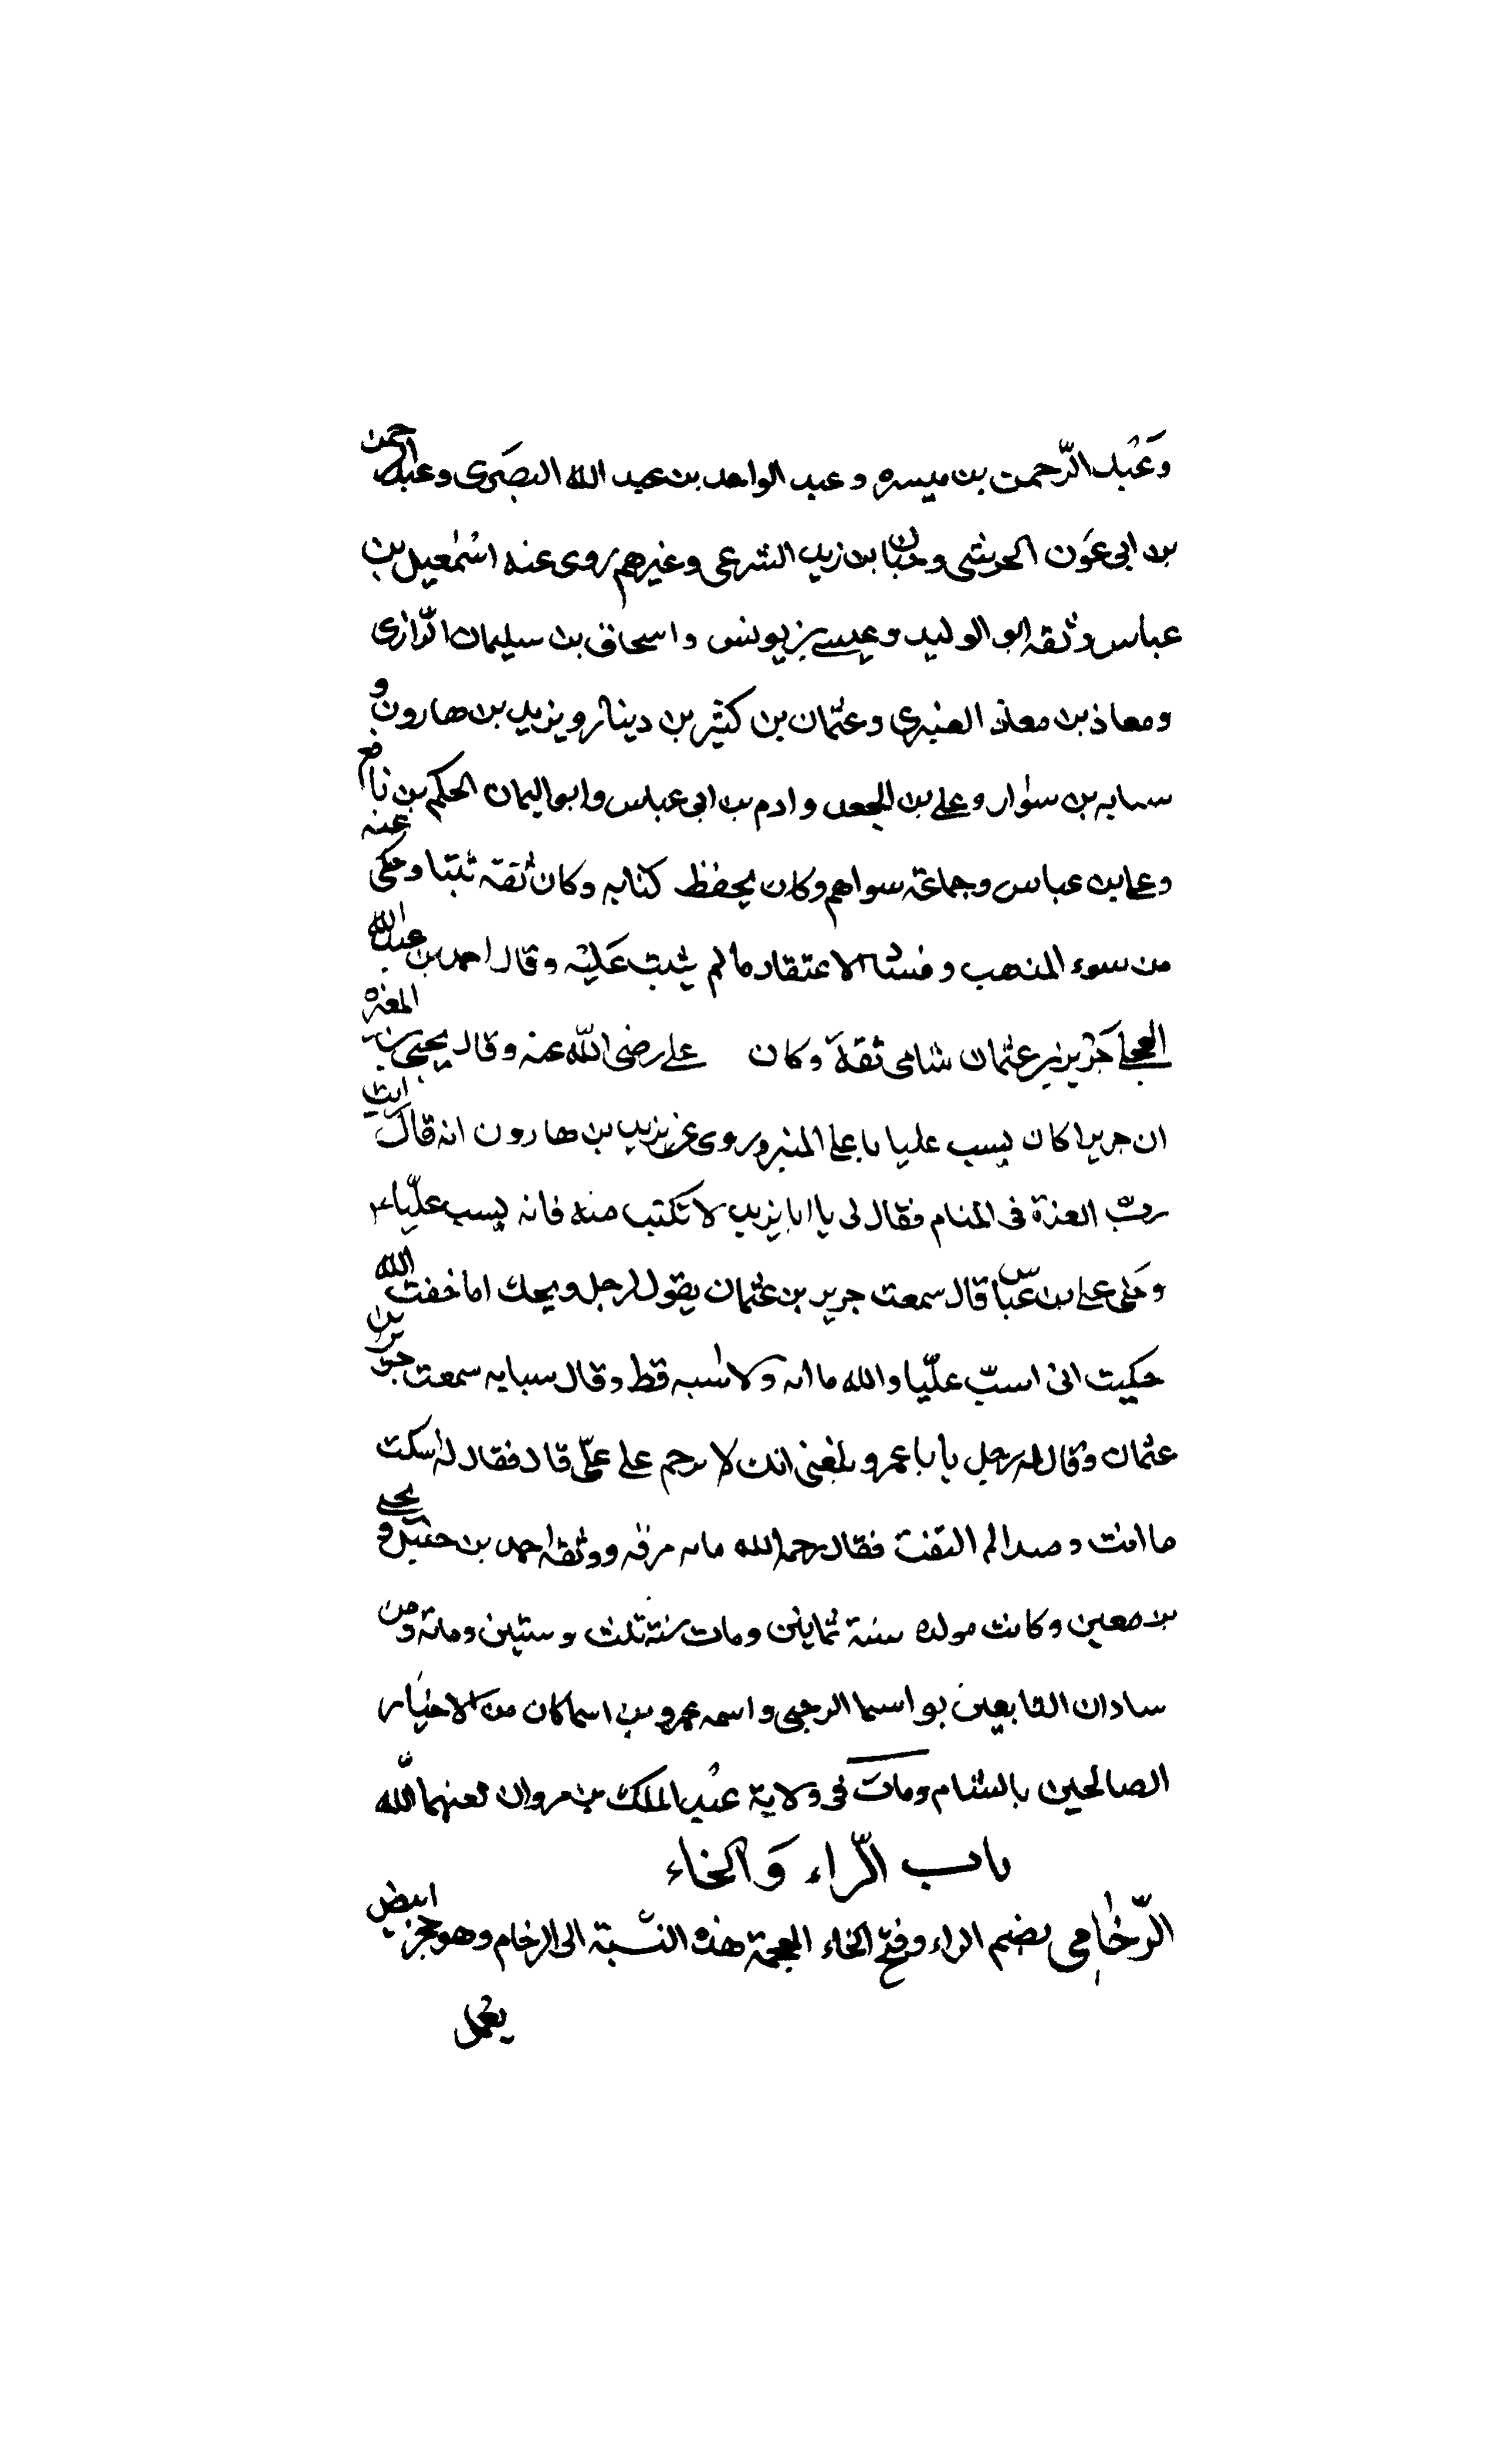 وَعَبْد الرّحمن بن ميسره وعبد الواحد بن عبد الله البصَرى وعبد الرحمن
بن ابى عَون الحرشى وحبان بن زيد الشرعى وغيرهم روى عنه اسْمٰعيل بن
عباس وثقه ابو الوليد وعيسى بن يونس واسحاق بن سليمان الرّازى
ومعاذ بن معاذ العنبرى وعثمان بن كثير بن دينار ويزيد بن هارون و
سبابه بن سوار وعلى بن الجعد وادم بن ابى عباس وابو اليمان الحكم بن نافع
وعلى بن عباس وجماعة سواهم وكان يحفظ كتابه وكان ثقة ثبتا وحكى عنه
من سوء المذهب وفساد الاعتقاد ما لم يثبت عَليْه وقال احمد بن عبد الله
العجلى حَريز بن عثمان شامى ثقةَ وكان على رضى الله عنه وقال يحيى بن المغيره
ان جريرا كان يسب عليا على المنبر وروى عن يزيد بن هارون انه قال رايت
ربّ العزة فى المنام فقال لى يا ابا يزيد لا تكتب منه فانه يسب عليّا
وحَكى على بن عباس قال سمعت جرير بن عثمان يقول لرجل ويحك اما خفت الله
حكيت انى اسبّ عليّا والله ما اسبه ولا سبه قط وقال سبايه سمعت جرير بن
عثمان وقال له رجل يا با عمرو بلغنى انك لا ترحم على علىّ قال فقال له اسكت
ما انت وهذا ثم التفت فقال رحمه الله مايه مرة ووثقه احمد بن حنبل ويحيى
بن معين وكانت مولده سنة ثمانين ومات سنة ثلث وستين ومائة ومن
سادان التابعين بو اسما الرحبى واسمه عمرو بن اسما كان من الاخيار
الصالحين بالشام ومات فى ولاية عبْد الملك بن مروان لعنهما اللّه
باب الرّاء وَالخاء
الرّخامى بضم الراء وفتح الخاء المعجمة هذه النسّبة الى الرخام وهو حجر ابيض
يعْمل